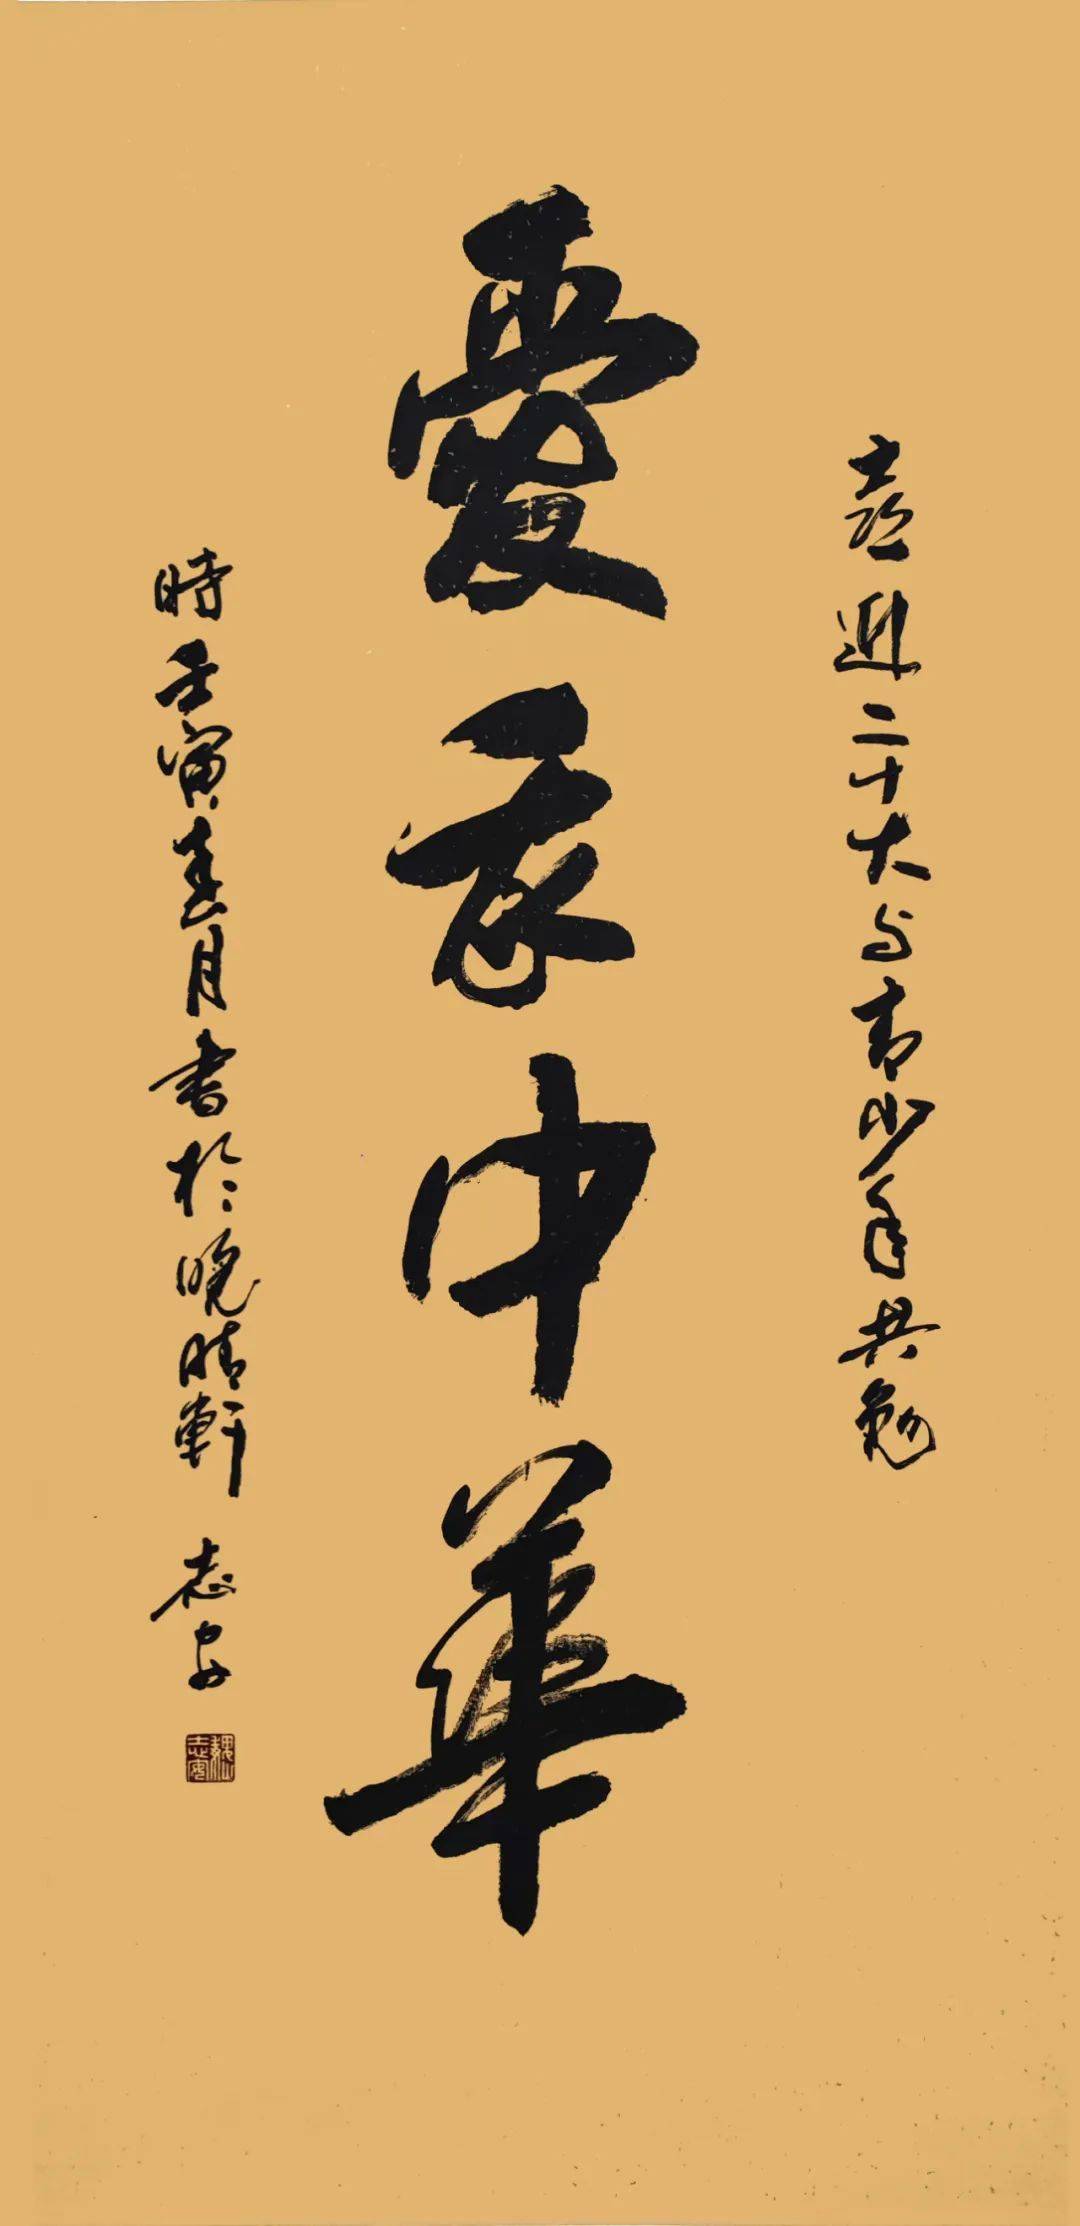 喜迎二十大与青少年共勉
愛我中華
時壬寅春月書於晚晴軒 志安
魏志安